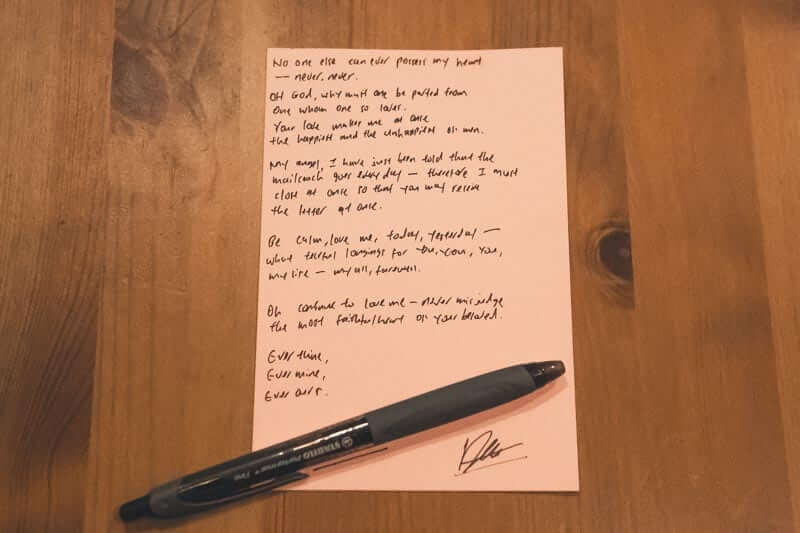 No one else can ever possess my heart
— never, never.
Oh God, why must one be parted from
one whom one so loves.
Your love makes me at once
the happiest and the unhappiest of men.
My angel, I have just been told that the
mailcoach goes every day — therefore I must
close at once so that you may receive
the letter at once.
Be calm, love me, today, yesterday —
what tearful longings for you, you, you,
my life — my all, farewell.
Oh continue to love me — never misjudge
the most faithful heart of your beloved.
Ever thine,
Ever mine,
Ever ours.
STABILO Performer™ Fine